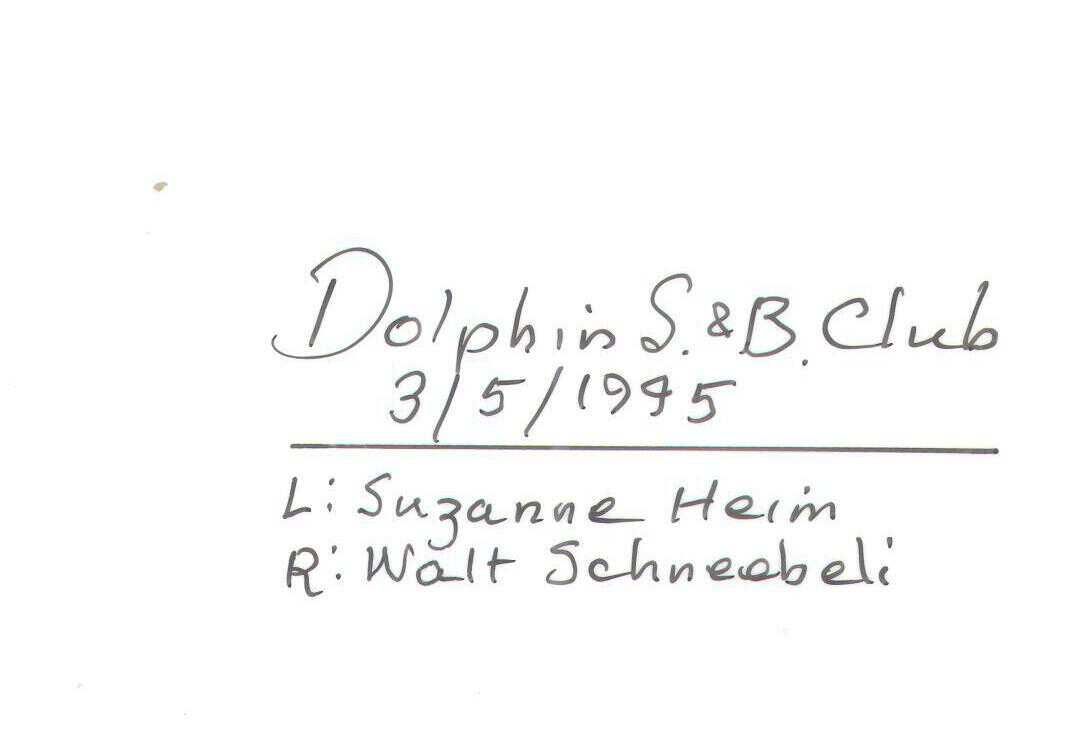 Dolphin S. & B. Club
3/5/1995
L: Suzanne Heim
R: Walt Schneebeli